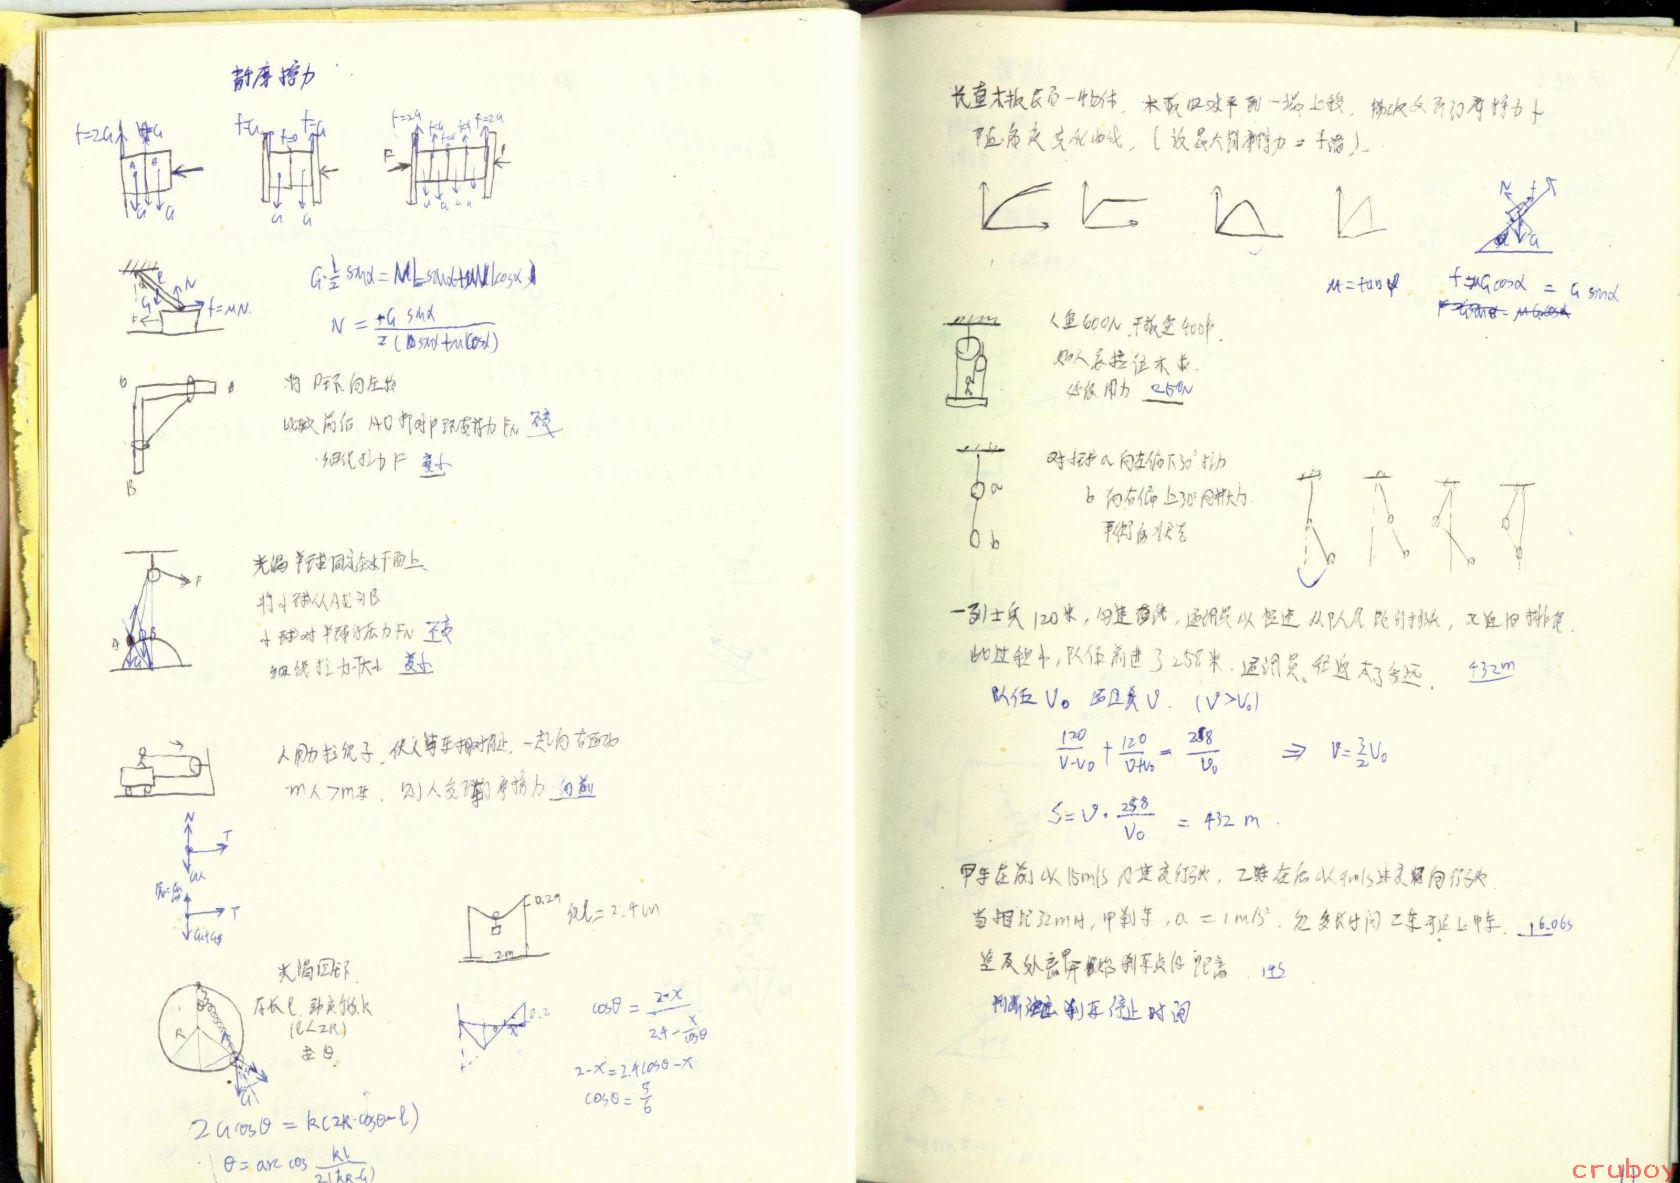 静摩擦力
f=2G G
f=G f=0 f=G
f=2G f=G f=G f=2G
A B
G G
G G
F
G G G G
G·½ sinα = NLsinα+μNLcosα
N = G sinα / 2(sinα+μcosα)
N
f=μN
将P环向左移
比较前后 AO杆对P环支持力FN 不变
细线拉力F 变小
B
光滑半球固定在水平面上
将小球从A拉到B
小球对半球的压力FN 不变
细线拉力大小 变小
F
A B
人用力拉绳子,使人与车相对静止,一起向右运动
m人>m车. 则人受到的摩擦力 向前
N
T
T
0.2m
绳l=2.4m
2m
光滑圆环
原长l 劲度系数k
(l<2R)
求θ
R
G
0.2
x
cosθ = 2-x / 2.4 - x/cosθ
2-x=2.4cosθ-x
cosθ=5/6
2Gcosθ = k(2R·cosθ-l)
θ=arc cos kl / 2(kR-G)
长直木板上有一物体, 木板由水平到一端上移, 物体受到的摩擦力f
随角度变化曲线, (设最大静摩擦力=f滑).
N f
α G
μ=tanφ f=μGcosα = G sinα
人重600N 平板重400N.
如人要拉住木板.
必须用力 250N
对小球a向左偏下30°拉力
b向右偏上30°同样大力
平衡后状态
a
b
一列士兵120米, 匀速前进, 通讯员以恒速从队尾跑到排头, 又返回排尾.
此过程中, 队伍前进了258米. 通讯员往返走了多远. 432m
队伍V₀ 通讯员V. (V>V₀)
120/V-V₀ + 120/V+V₀ = 258/V₀ ⇒ V=3/2V₀
S=V·258/V₀ = 432 m.
甲车在前以15m/s的速度行驶, 乙车在后以9m/s速度同向行驶.
当相距32m时, 甲刹车, a=1m/s². 经多长时间乙车可追上甲车. 16.06s
判断 刹车停止时间
cruboy